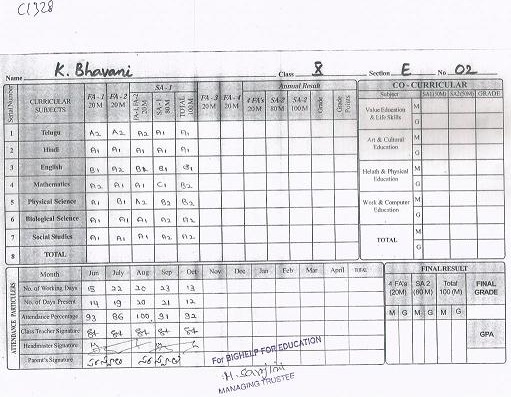 C1328
Name K. Bhavani Class 8 Section E No 02
Serial Number CURRICULAR SUBJECTS FA - 1 20 M FA - 2 20 M FA-1, FA-2 20 M SA - 1 SA - 1 80 M TOTAL 100 M FA - 3 20 M FA - 4 20 M Annual Result 4 FA's 20 M SA-2 80 M SA-2 100 M Grade Grade Points
1 Telugu A2 A2 A2 A1 A1
2 Hindi A1 A1 A1 A1 A1
3 English B1 A2 B1 B1
4 Mathematics A2 A1 A1 C1 B2
5 Physical Science A1 B1 A2 B2 B2
6 Biological Science A1 A1 A1 A2 A2
7 Social Studies A1 A1 A1 A2 A2
8 TOTAL
CO - CURRICULAR
Subject SA1(50M) SA2(50M) GRADE
Value Education & Life Skills M G
Art & Cultural Education M G
Helath & Physical Education M G
Work & Computer Education M G
TOTAL M G
ATTENDANCE PARTICULERS
Month Jun July Aug Sep Oct Nov Dec Jan Feb Mar April TOTAL
No. of Working Days 15 22 20 23 13
No. of Days Present 14 19 20 21 12
Attendance Percentage 93 86 100 91 92
Class Teacher Signature
Headmaster Signature
Parent's Signature
FINAL RESULT
4 FA's (20M) SA 2 (80 M) Total 100 (M) FINAL GRADE
M G M G M G
GPA
For BIGHELP FOR EDUCATION
MANAGING TRUSTEE